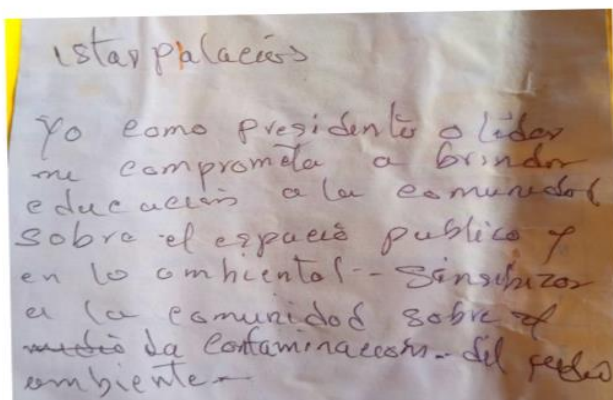 istar palacios
Yo como presidente o lider
me comprometa a brindar
educacion a la comunidad
sobre el espacio publico y
en lo ambiental -- Sinsibizar
a la comunidad sobre el
medio La contaminacion - del medio
ambiente -